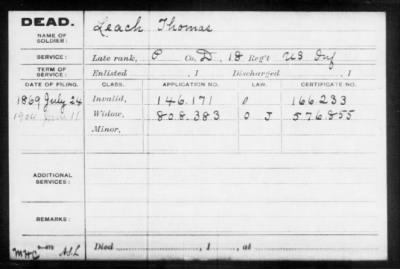 DEAD. Leach Thomas
NAME OF SOLDIER:
SERVICE: Late rank, P Co. D, 18 Reg't US Inf
TERM OF SERVICE: Enlisted , 1 Discharged , 1
DATE OF FILING. CLASS. APPLICATION NO. LAW. CERTIFICATE NO.
1869 July 24 Invalid, 146.171 166.233
Widow, 808.383 O J 576.855
Minor,
ADDITIONAL SERVICES:
REMARKS:
MHC ASL Died , 1 , at